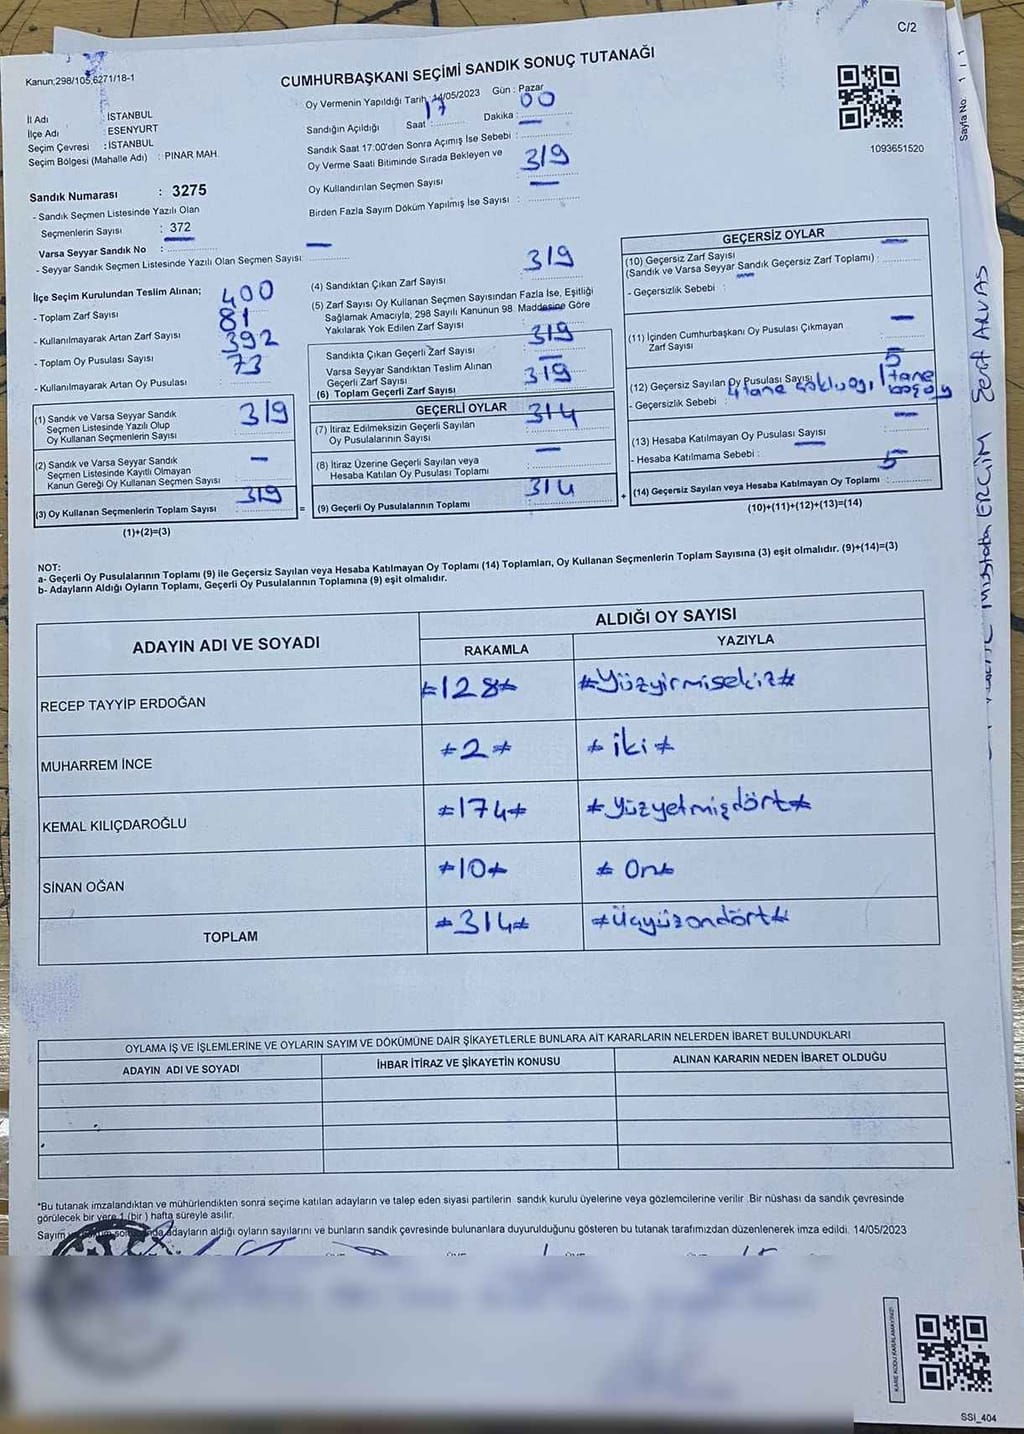 C/2
Kanun;298/105,6271/18-1
CUMHURBAŞKANI SEÇİMİ SANDIK SONUÇ TUTANAĞI
İl Adı : İSTANBUL
İlçe Adı : ESENYURT
Seçim Çevresi : İSTANBUL
Seçim Bölgesi (Mahalle Adı) : PINAR MAH.
Oy Vermenin Yapıldığı Tarih : 14/05/2023 Gün : Pazar
Sandığın Açıldığı Saat : 17 Dakika : 00
Sandık Saat 17:00'den Sonra Açımış İse Sebebi : —
Oy Verme Saati Bitiminde Sırada Bekleyen ve
Oy Kullandırılan Seçmen Sayısı : 319
Birden Fazla Sayım Döküm Yapılmış İse Sayısı : —
1093651520
Sayfa No: 1 / 1
Sandık Numarası : 3275
- Sandık Seçmen Listesinde Yazılı Olan
Seçmenlerin Sayısı : 372
Varsa Seyyar Sandık No : —
- Seyyar Sandık Seçmen Listesinde Yazılı Olan Seçmen Sayısı: —
İlçe Seçim Kurulundan Teslim Alınan;
- Toplam Zarf Sayısı 400
- Kullanılmayarak Artan Zarf Sayısı 81
- Toplam Oy Pusulası Sayısı 392
- Kullanılmayarak Artan Oy Pusulası 73
(1) Sandık ve Varsa Seyyar Sandık
Seçmen Listesinde Yazılı Olup
Oy Kullanan Seçmenlerin Sayısı 319
(2) Sandık ve Varsa Seyyar Sandık
Seçmen Listesinde Kayıtlı Olmayan
Kanun Gereği Oy Kullanan Seçmen Sayısı : —
(3) Oy Kullanan Seçmenlerin Toplam Sayısı : 319
(1)+(2)=(3)
=
(4) Sandıktan Çıkan Zarf Sayısı 319
(5) Zarf Sayısı Oy Kullanan Seçmen Sayısından Fazla İse, Eşitliği
Sağlamak Amacıyla, 298 Sayılı Kanunun 98. Maddesine Göre
Yakılarak Yok Edilen Zarf Sayısı : —
Sandıkta Çıkan Geçerli Zarf Sayısı 319
Varsa Seyyar Sandıktan Teslim Alınan
Geçerli Zarf Sayısı —
(6) Toplam Geçerli Zarf Sayısı 319
GEÇERLİ OYLAR
(7) İtiraz Edilmeksizin Geçerli Sayılan
Oy Pusulalarının Sayısı 314
(8) İtiraz Üzerine Geçerli Sayılan veya
Hesaba Katılan Oy Pusulası Toplamı : —
(9) Geçerli Oy Pusulalarının Toplamı : 314
+
GEÇERSİZ OYLAR
(10) Geçersiz Zarf Sayısı
(Sandık ve Varsa Seyyar Sandık Geçersiz Zarf Toplamı) : —
- Geçersizlik Sebebi : —
(11) İçinden Cumhurbaşkanı Oy Pusulası Çıkmayan
Zarf Sayısı —
(12) Geçersiz Sayılan Oy Pusulası Sayısı : 5
- Geçersizlik Sebebi : 4 tane çoklu oy, 1 tane
boş oy
(13) Hesaba Katılmayan Oy Pusulası Sayısı —
- Hesaba Katılmama Sebebi : —
(14) Geçersiz Sayılan veya Hesaba Katılmayan Oy Toplamı : 5
(10)+(11)+(12)+(13)=(14)
NOT:
a- Geçerli Oy Pusulalarının Toplamı (9) ile Geçersiz Sayılan veya Hesaba Katılmayan Oy Toplamı (14) Toplamları, Oy Kullanan Seçmenlerin Toplam Sayısına (3) eşit olmalıdır. (9)+(14)=(3)
b- Adayların Aldığı Oyların Toplamı, Geçerli Oy Pusulalarının Toplamına (9) eşit olmalıdır.
ADAYIN ADI VE SOYADI
ALDIĞI OY SAYISI
RAKAMLA YAZIYLA
RECEP TAYYİP ERDOĞAN #128# #Yüzyirmisekiz#
MUHARREM İNCE #2# #iki#
KEMAL KILIÇDAROĞLU #174# #Yüzyetmişdört#
SİNAN OĞAN #10# #On#
TOPLAM #314# #Üçyüzondört#
OYLAMA İŞ VE İŞLEMLERİNE VE OYLARIN SAYIM VE DÖKÜMÜNE DAİR ŞİKAYETLERLE BUNLARA AİT KARARLARIN NELERDEN İBARET BULUNDUKLARI
ADAYIN ADI VE SOYADI İHBAR İTİRAZ VE ŞİKAYETİN KONUSU ALINAN KARARIN NEDEN İBARET OLDUĞU
*Bu tutanak imzalandıktan ve mühürlendikten sonra seçime katılan adayların ve talep eden siyasi partilerin sandık kurulu üyelerine veya gözlemcilerine verilir .Bir nüshası da sandık çevresinde
görülecek bir yere 1 (bir ) hafta süreyle asılır.
Sayım adayların aldığı oyların sayılarını ve bunların sandık çevresinde bulunanlara duyurulduğunu gösteren bu tutanak tarafımızdan düzenlenerek imza edildi. 14/05/2023
Mustafa ERÇİM Sert ARVAS
KARE KODU KARALAMAYINIZ!
SSI_404